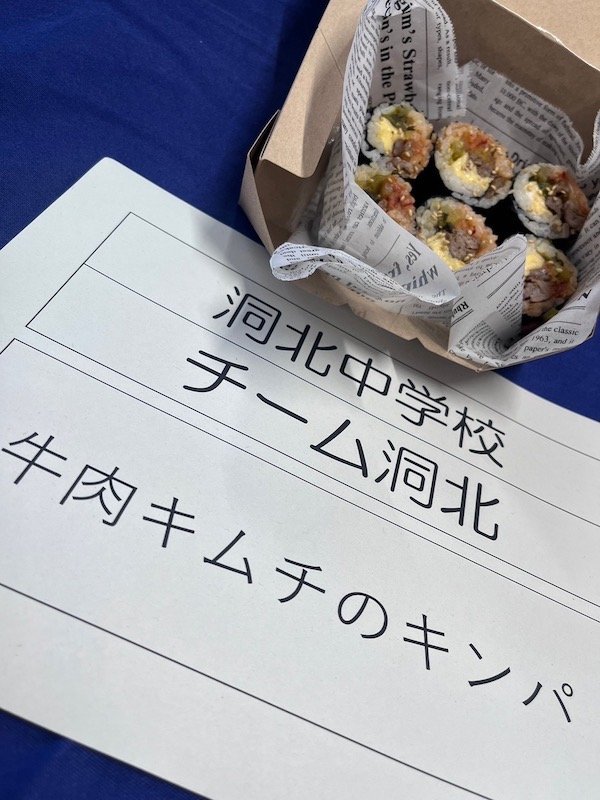 洞北中学校
チーム洞北
牛肉キムチのキンパ